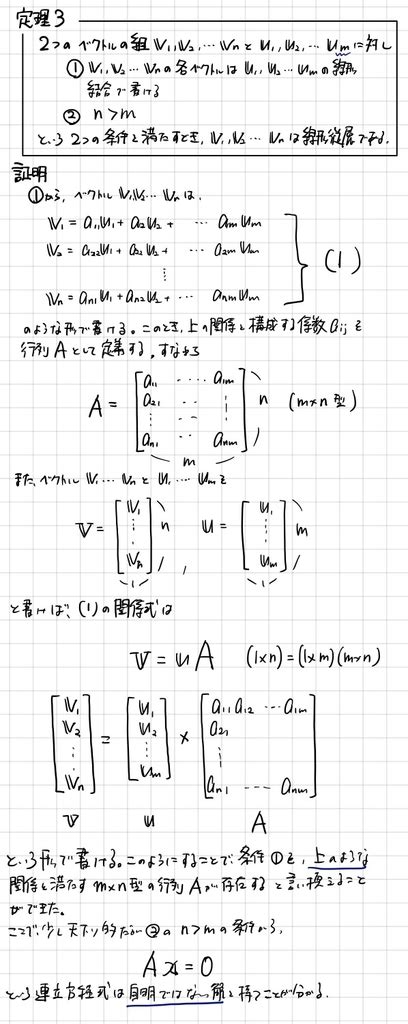 定理3
2つのベクトルの組 V₁,V₂,…Vn と U₁,U₂,…Um に対し
① V₁,V₂…Vn の各ベクトルは U₁,U₂…Um の線形
結合で書ける
② n>m
という2つの条件を満たすとき, V₁,V₂…Vn は線形従属である.
証明
①から, ベクトル V₁,V₂…Vn は,
V₁ = a₁₁U₁ + a₁₂U₂ + … a₁mUm
V₂ = a₂₂U₁ + a₂₂U₂ + … a₂mUm
⋮
Vn = an₁U₁ + an₂U₂ + … anmUm
(1)
のような形で書ける. このとき, 上の関係を構成する係数 aij を
行列 A として定義する. すなわち
A = [a₁₁ … a₁m
a₂₁ ⋮
an₁ … anm] n (m×n 型)
m
また, ベクトル V₁…Vn と U₁…Um を
V = [V₁ ⋮ Vn] n , U = [U₁ ⋮ Um] m
1 1
と書けば, (1)の関係式は
V = UA (1×n) = (1×m)(m×n)
[V₁ V₂ ⋮ Vn] = [U₁ U₂ ⋮ Um] × [a₁₁ a₁₂ … a₁m
a₂₁
⋮
an₁ … anm]
V U A
という形で書ける. このようにすることで, 条件①を, 上のような
関係を満たす m×n 型の行列 A が存在すると言い換えること
ができた.
ここで, 少し天下り的だが②の n>m の条件から,
Ax = 0
という連立方程式は自明ではない解を持つことが分かる.